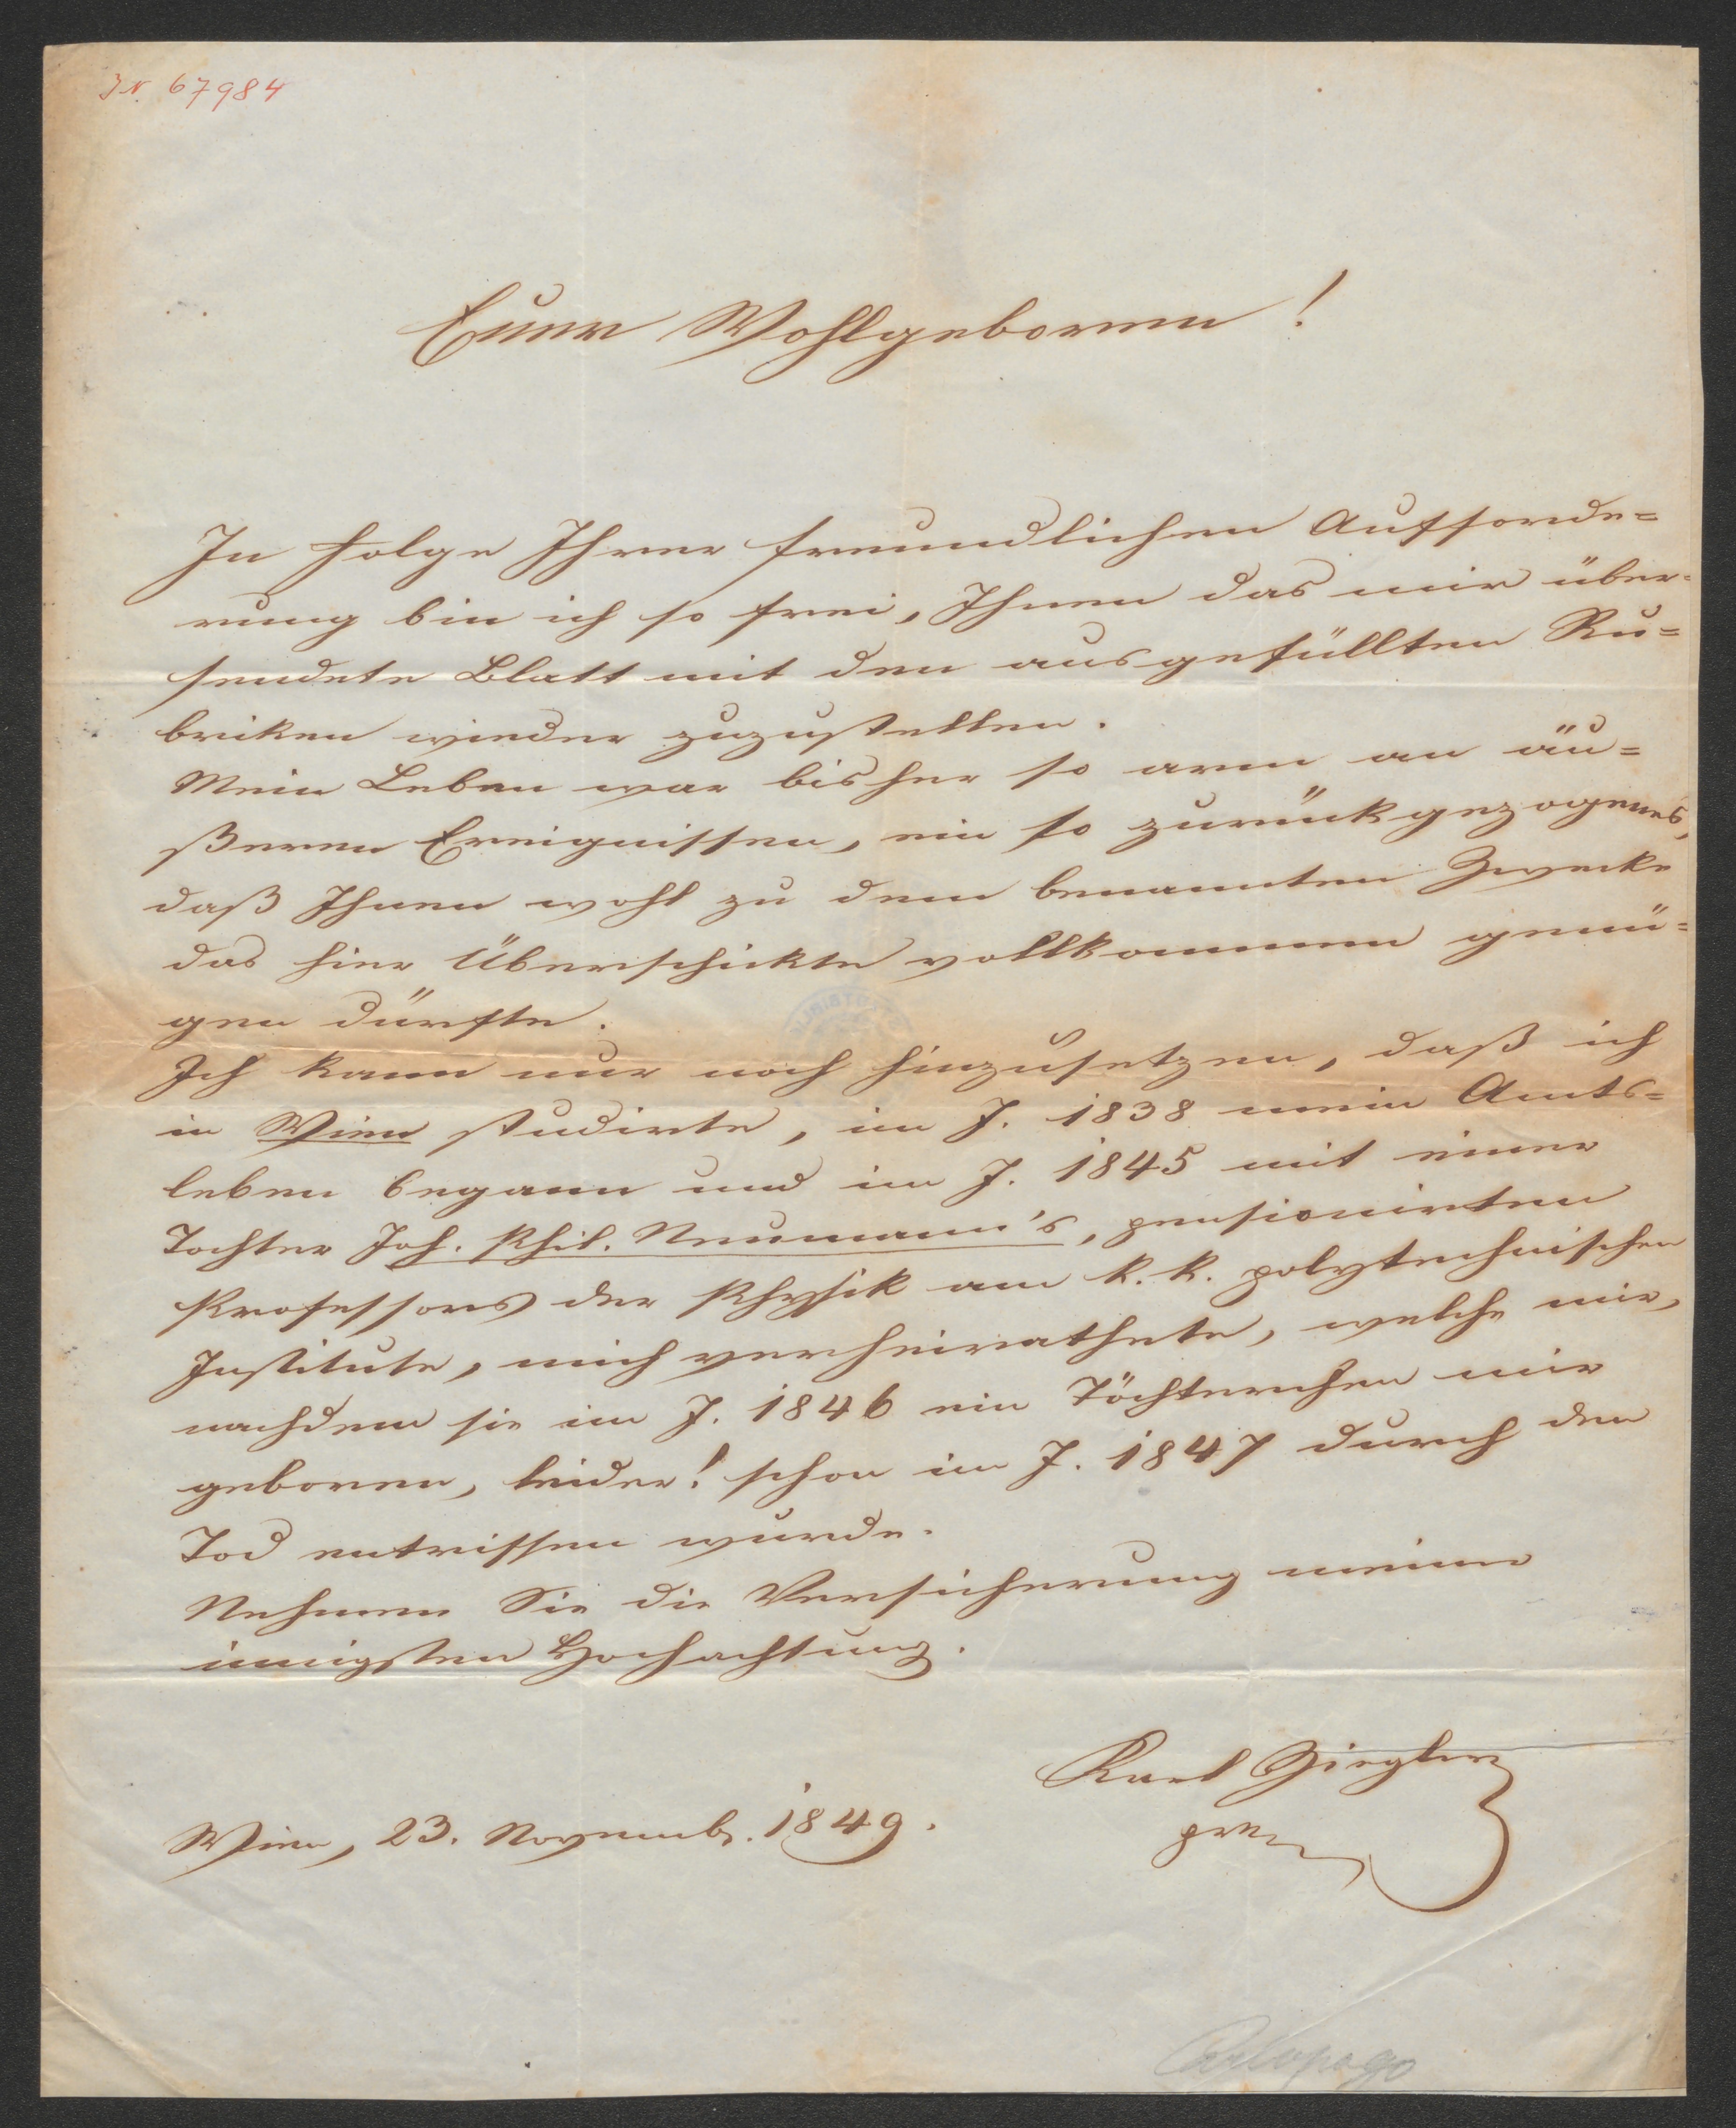 IN. 67984
Euer Wohlgeboren!
In Folge Ihrer freundlichen Aufforde=
rung bin ich so frei, Ihnen das mir über=
sendete Blatt mit den ausgefüllten Ru=
briken wieder zuzustellen.
Mein Leben war bisher so arm an äu=
ßeren Ereignissen, ein so zurückgezogenes,
daß Ihnen wohl zu dem benannten Zwecke
das hier Überschickte vollkommen genü=
gen dürfte.
Ich kann nur noch hinzusetzen, daß ich
in Wien studirte, im J. 1838 mein Amts=
leben begann und im J. 1845 mit einer
Tochter Joh. Phil. Neumann's, pensionirten
Professors der Physik am k. k. polytechnischen
Institute, mich verheirathete, welche mir,
nachdem sie im J. 1846 ein Töchterchen mir
geboren, leider! schon im J. 1847 durch den
Tod entrissen wurde.
Nehmen Sie die Versicherung meiner
innigsten Hochachtung.
Karl Ziegler
Wien, 23. Novemb. 1849.
Carlopago